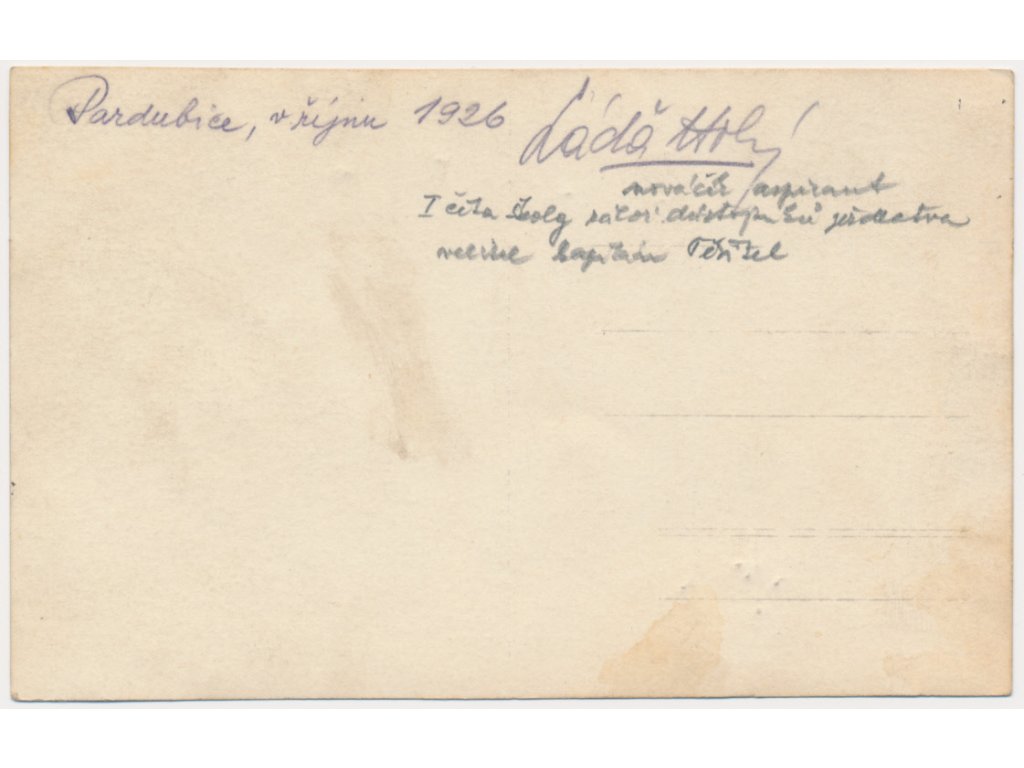 Pardubice, v říjnu 1926
Láďa Holý
nováček aspirant
I četa školy zálož. důstojníků jezdectva
velitel kapitán